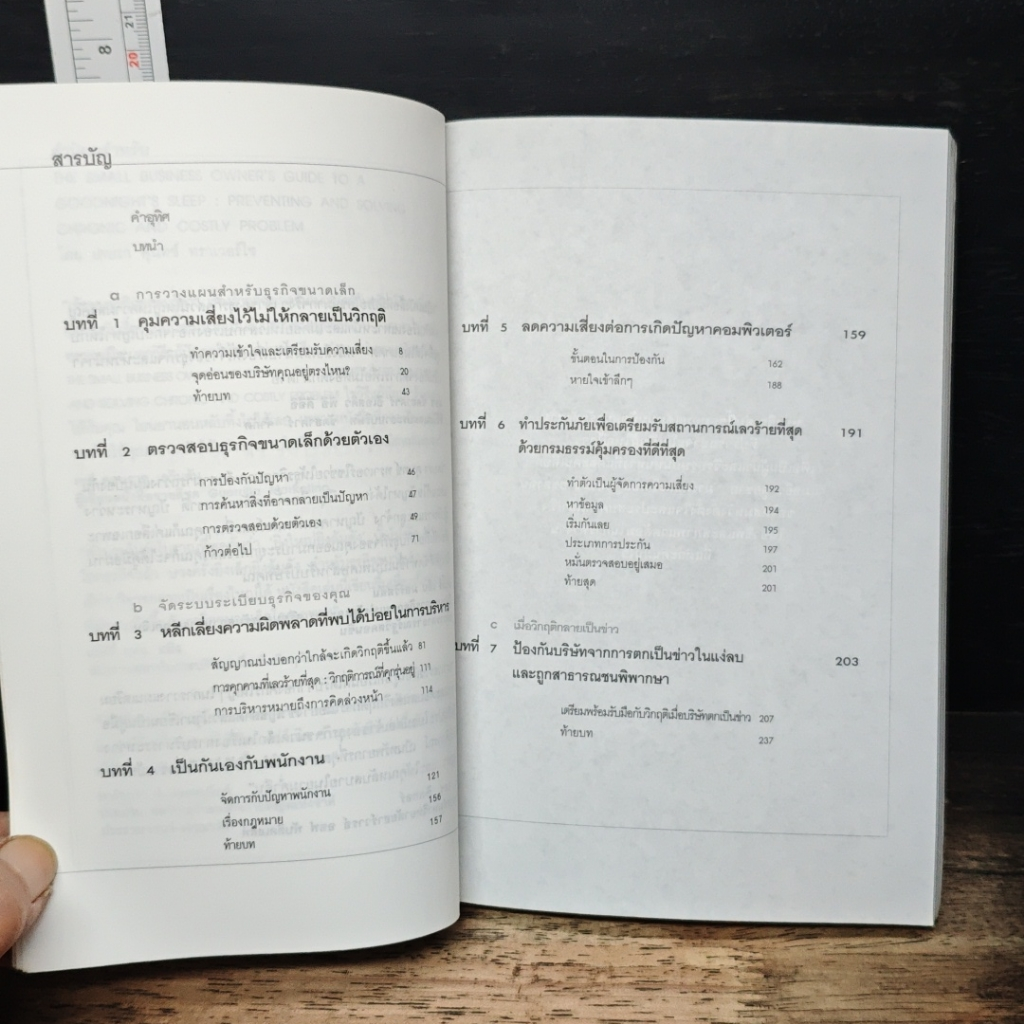 8
21
20
สารบัญ
คำอุทิศ
บทนำ
a การวางแผนสำหรับธุรกิจขนาดเล็ก
บทที่ 1 คุมความเสี่ยงไว้ไม่ให้กลายเป็นวิกฤติ
ทำความเข้าใจและเตรียมรับความเสี่ยง 8
จุดอ่อนของบริษัทคุณอยู่ตรงไหน? 20
ท้ายบท 43
บทที่ 2 ตรวจสอบธุรกิจขนาดเล็กด้วยตัวเอง
การป้องกันปัญหา 46
การค้นหาสิ่งที่อาจกลายเป็นปัญหา 47
การตรวจสอบด้วยตัวเอง 49
ก้าวต่อไป 71
b จัดระบบระเบียบธุรกิจของคุณ
บทที่ 3 หลีกเลี่ยงความผิดพลาดที่พบได้บ่อยในการบริหาร
สัญญาณบ่งบอกว่าใกล้จะเกิดวิกฤติขึ้นแล้ว 81
การคุกคามที่เลวร้ายที่สุด : วิกฤติการณ์ที่คุกรุ่นอยู่ 111
การบริหารหมายถึงการคิดล่วงหน้า 114
บทที่ 4 เป็นกันเองกับพนักงาน
จัดการกับปัญหาพนักงาน 121
เรื่องกฎหมาย 156
ท้ายบท 157
บทที่ 5 ลดความเสี่ยงต่อการเกิดปัญหาคอมพิวเตอร์ 159
ขั้นตอนในการป้องกัน 162
หายใจเข้าลึกๆ 188
บทที่ 6 ทำประกันภัยเพื่อเตรียมรับสถานการณ์เลวร้ายที่สุด 191
ด้วยกรมธรรม์คุ้มครองที่ดีที่สุด
ทำตัวเป็นผู้จัดการความเสี่ยง 192
หาข้อมูล 194
เริ่มกันเลย 195
ประเภทการประกัน 197
หมั่นตรวจสอบอยู่เสมอ 201
ท้ายสุด 201
c เมื่อวิกฤติกลายเป็นข่าว
บทที่ 7 ป้องกันบริษัทจากการตกเป็นข่าวในแง่ลบ 203
และถูกสาธารณชนพิพากษา
เตรียมพร้อมรับมือกับวิกฤติเมื่อบริษัทตกเป็นข่าว 207
ท้ายบท 237